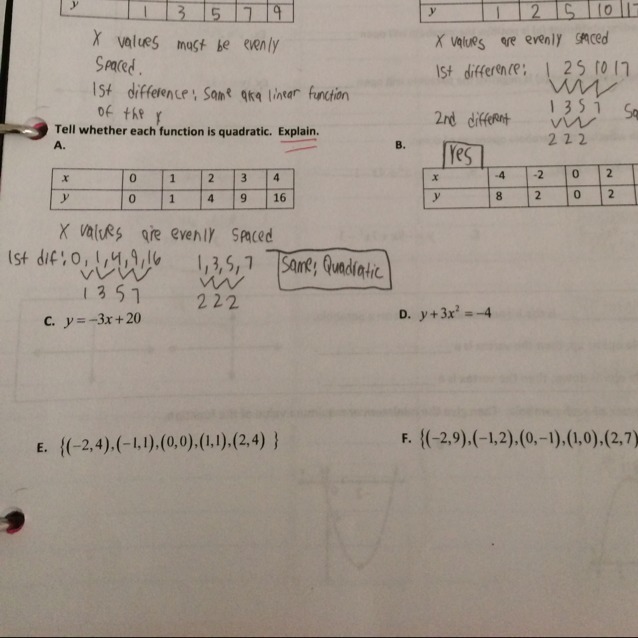 y 1 3 5 7 9
y 1 2 5 10 17
X values must be evenly
Spaced.
1st difference: Same aka linear function
of the y
X values are evenly spaced
1st difference: 1 2 5 10 17
1 3 5 7
2nd different
2 2 2
Tell whether each function is quadratic. Explain.
A.
x 0 1 2 3 4
y 0 1 4 9 16
X values are evenly spaced
1st dif: 0, 1, 4, 9, 16
1 3 5 7
1, 3, 5, 7
2 2 2
Same; Quadratic
B.
Yes
x -4 -2 0 2
y 8 2 0 2
C. y = −3x + 20
D. y + 3x² = −4
E. {(−2,4),(−1,1),(0,0),(1,1),(2,4) }
F. {(−2,9),(−1,2),(0,−1),(1,0),(2,7)